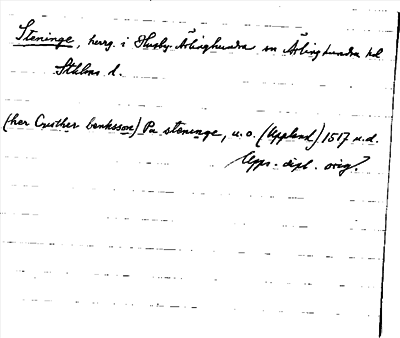 Steninge, herrg. i Husby-Ärlinghundra sn Ärlinghundra hd
Sthlms l.
(her Cristher benktsson) Pa steninge, u.o. (Uppland) 1517 u.d.
Upps. dipl. orig.